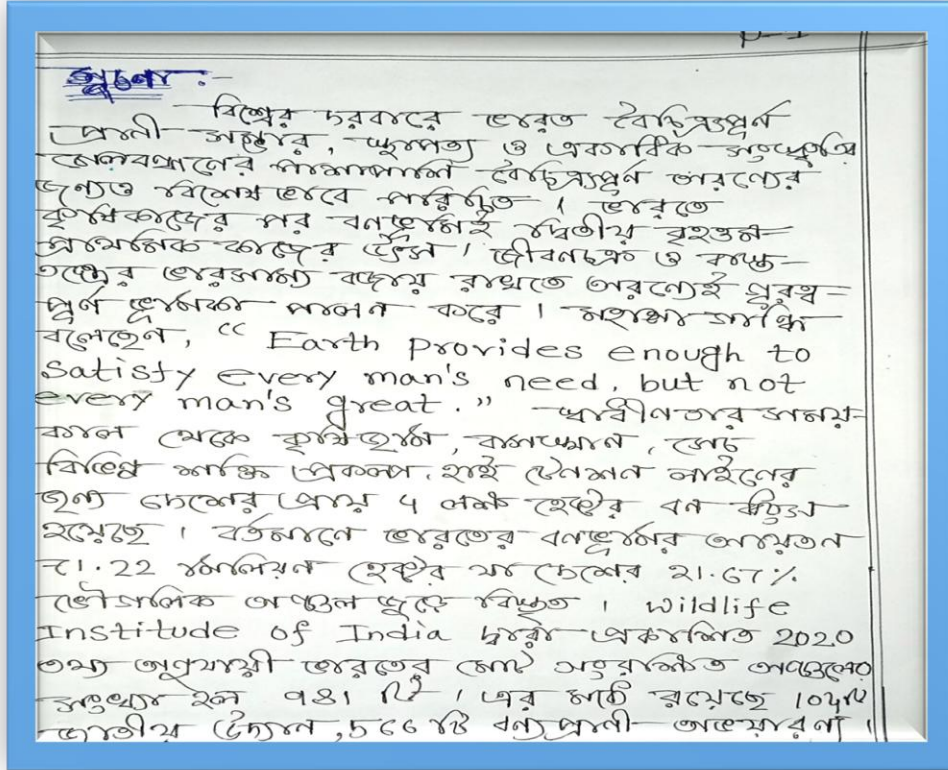 P-1
সূচনা :-
বিশ্বের দরবারে ভারত বৈচিত্র্যপূর্ণ
প্রানী সম্ভার, স্থাপত্য ও একাধিক সংস্কৃতির
মেলবন্ধানের পাশাপাশি বৈচিত্র্যপূর্ণ অরণ্যের
জন্যও বিশেষ ভাবে পরিচিত । ভারতে
কৃষিকাজের পর বণভূমিই দ্বিতীয় বৃহত্তম
প্রাথমিক কাজের উৎস । জীবনচক্র ও বাস্তু-
তন্ত্রের ভারসাম্য বজায় রাখতে অরণ্যেই গুরুত্ব-
পূর্ণ ভূমিকা পালন করে । মহাত্মা গান্ধি
বলেছেণ, “ Earth provides enough to
satisfy every man's need, but not
every man's great.” স্বাধীনতার সময়-
কাল থেকে কৃষিজমি, বাসস্থান, সেচ
বিভিন্ন শক্তি প্রকল্প, হাই টেনশন লাইনের
জন্য দেশের প্রায় ৭ লক্ষ হেক্টর বণ
হয়েছে । বর্তমাণে ভারতের বণভূমির আয়তন
৭১.২২ মিলিয়ন হেক্টর যা দেশের ২১.৬৭%
ভৌগলিক অঞ্চল জুড়ে বিস্তৃত । Wildlife
Institude of India দ্বারা প্রকাশিত 2020
তথ্য অণুযায়ী ভারতের মোট সংরক্ষিত অঞ্চলের
সংখ্যা হল ৭৪১ টি । এর মধ্যে রয়েছে 104টি
জাতীয় উদ্যান, ৫৬৬ টি বণ্যপ্রানী অভয়ারণ্য ।